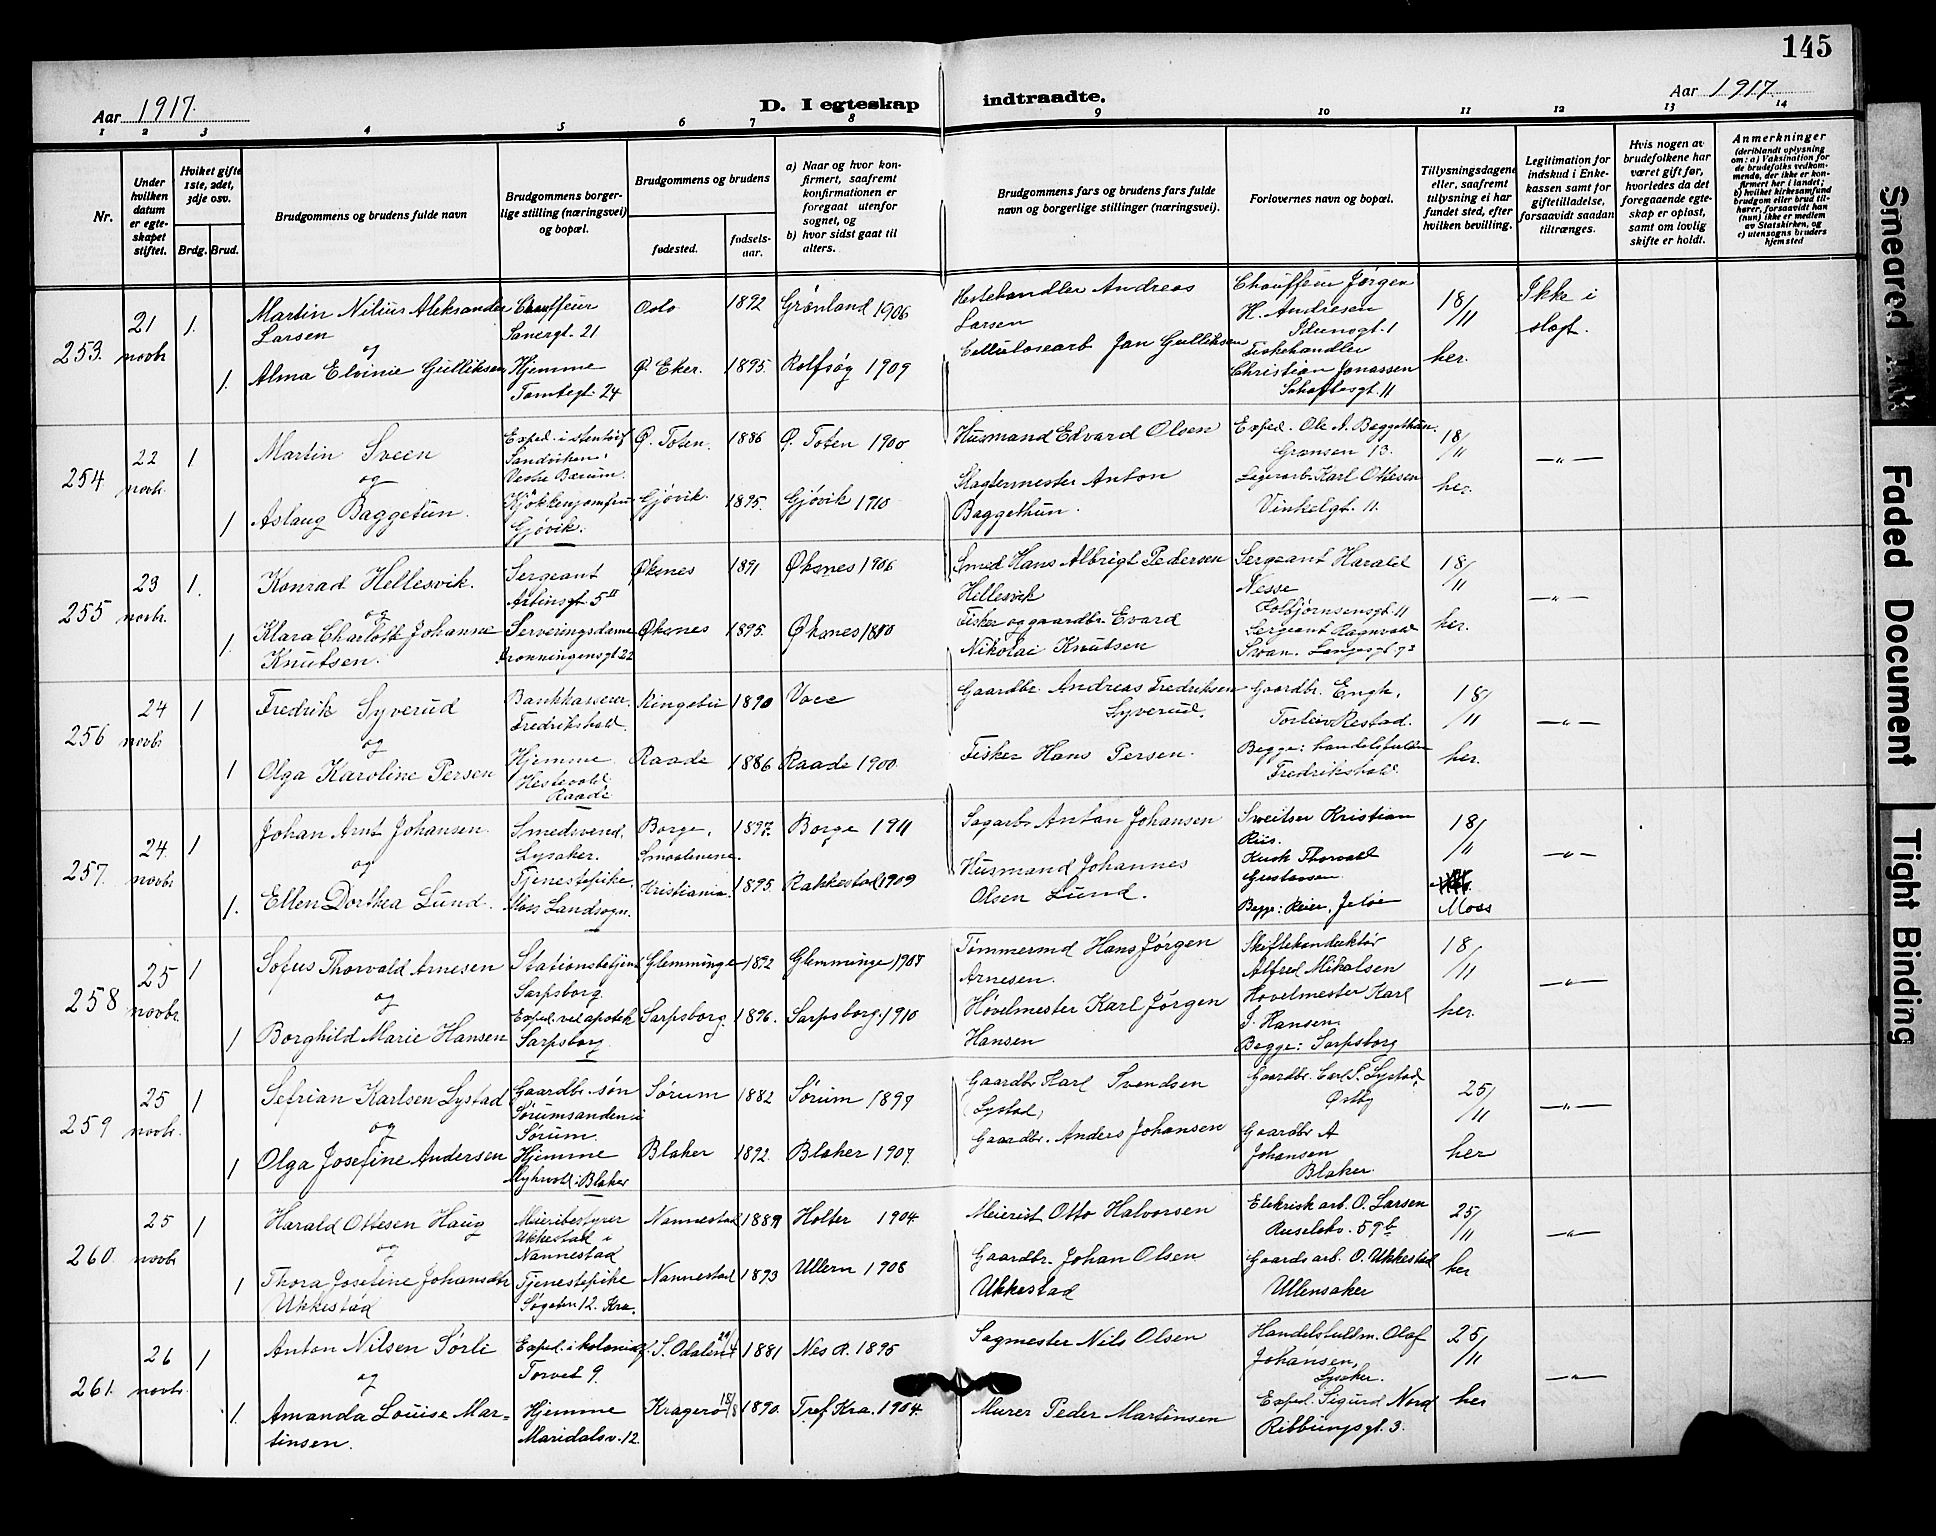 145
Aar 1917.
D. I egteskap
indtraadte.
Aar 1917.
1 2 3 4 5 6 7 8 9 10 11 12 13 14
Nr.
Under hvilken datum er egteskapet stiftet.
Hvilket gifte 1ste, 2det, 3dje osv.
Brdg. Brud.
Brudgommens og brudens fulde navn
Brudgommens borgerlige stilling (næringsvei) og bopæl.
Brudgommens og brudens
fødested.
fødselsaar.
a) Naar og hvor konfirmert, saafremt konfirmationen er foregaat utenfor sognet, og
b) hvor sidst gaat til alters.
Brudgommens fars og brudens fars fulde navn og borgerlige stillinger (næringsvei).
Forlovernes navn og bopæl.
Tillysningsdagene eller, saafremt tillysning ei har fundet sted, efter hvilken bevilling.
Legitimation for indskud i Enkekassen samt for giftetilladelse, forsaavidt saadan tiltrænges.
Hvis nogen av brudefolkene har været gift før, hvorledes da det foregaaende egteskap er opløst, samt om lovlig skifte er holdt.
Anmerkninger
(deriblandt oplysning om: a) Vaksination for de brudefolks vedkommende, der ikke er konfirmert her i landet; b) hvilket kirkesamfund brudgom eller brud tilhører, forsaavidt han (hun) ikke er medlem av Statskirken, og c) utensogns bruders hjemsted
253. 21 novbr. 1. Martin Nilius Aleksander Larsen
Chauffeur Sanergt. 21
Oslo 1892 Grønland 1906
Hestehandler Andreas Larsen
Chauffeur Jørgen H. Andresen Idunsgt. 1
18/11 her.
Ikke i slegt.
og
1. Alma Elvinie Gulliksen
Hjemme Tomtegt. 24
Ø. Eker. 1895 Rolfsøy 1909
Cellulosearb Jan Gulliksen
Fiskehandler Christian Jonassen Schoftesgt. 11
254 22 novbr. 1 Martin Sveen
Exped. i stentøif Sandviken i Vestre Bærum.
Ø. Toten. 1886 Ø. Toten 1900
Husmand Edvard Olsen
Exped. Ole A. Baggethun. Grænsen 13.
18/11 her.
—"—
og
1 Aslaug Baggetun.
Kjøkkenjomfru Gjøvik.
Gjøvik. 1895. Gjøvik 1910
Slagtermester Anton Baggethun.
Lagerarb. Karl Ottesen Vinkelgt. 11.
255 23 novbr. 1. Konrad Hellesvik.
Sergeant Arbinsgt. 5 II
Øksnes 1891 Øksnes 1906
Smed Hans Albrigt Pedersen Hillesvik
Sergeant Harald Nesse Kolbjørnsensgt. 11
18/11 her.
—"—
og
1. Klara Charlotte Johanne Knutsen.
Serveringsdame Dronningensgt 22
Øksnes 1895. Øksnes 1810
Fisker og gaardbr. Evard Nikolai Knutsen
Sergeant Ragnvald Svan. Langesgt
256 24 novbr 1 Fredrik Syverud
Bankkasserer Fredrikshald.
Ringebu 1890 Voee
Gaardbr. Andreas Fredriksen Syverud.
Gaardbr. Engh, Torleiv Restad.
18/11 her.
—"—
og
1 Olga Karoline Persen
Hjemme Hestevold Raade
Raade 1886 Raade 1900
Fisker Hans Persen.
Begge: handelsfuldm Fredrikshald.
257. 24. novbr 1 Johan Arnt Johansen.
Smedsvend. Lysaker.
Borge, Smaalenene. 1897. Borge 1911
Sagarb. Anton Johansen
Sveitser Kristian Riis.
18/11 Moss
—"—
og
1. Ellen Dorthea Lund.
Tjenestepike. Moss Landsogn.
Kristiania. 1895 Rakkestad 1909
Husmand Johannes Olsen Lund.
Kusk Thorvald Gustavsen.
Begge: Reier, Jeløe
258 25 novbr. 1 Sofus Thorvald Arnesen
Stationsbetjent Sarpsborg.
Glemminge 1892 Glemminge 1907
Tømmermd Hans Jørgen Arnesen.
Skiftekonduktør Alfred Mikalsen
18/11 her.
—"—
og
1 Borghild Marie Hansen
Exped. ved apothek Sarpsborg
Sarpsborg. 1896. Sarpsborg. 1910
Høvelmester Karl Jørgen Hansen
Høvelmester Karl J. Hansen.
Begge: Sarpsborg
259 25 novbr. 1 Sefrian Karlsen Lystad
Gaardbr. søn Sørumsanden i Sørum.
Sørum 1882 Sørum 1897
Gaardbr Karl Svendsen (Lystad)
Gaardbr. Carl S. Lystad, Østby
25/11 her
—"—
og
1 Olga Josefine Andersen
Hjemme Myhrvold i Blaker
Blaker 1892. Blaker 1907.
Gaardbr. Anders Johansen
Gaardbr A Johansen Blaker.
260. 25 novbr 1 Harald Ottesen Haug
Meieribestyrer Ukkestad i Nannestad
Nannestad 1889 Holter 1904.
Meierist Otto Halvorsen
Elekrisk arb. O. Larsen Ruseløkv. 59b
25/11 her
—"—
og
1 Thora Josefine Johansdtr Ukkestad
Tjenestepike Søgaten 12. Kra.
Nannestad 1893 Ullern 1908
Gaardbr. Johan Olsen Ukkestad
Gaards arb. O. Ukkestad Ullensaker
261. 26 novbr. 1 Anton Nilsen Sørli
Exped. i kolonialf. Torvet 9.
S. Odalen 1881 Nes R. 1895
Sagmester Nils Olsen
Handelsfuldm. Olaf Johansen, Lysaker.
25/11 her
—"—
og
1. Amanda Louise Martinsen.
Hjemme Maridalsv. 12.
Kragerø 18/8 1890. Tref. Kra. 1904.
Murer Peder Martinsen
Exped. Sigurd Nord Ribbungsgt. 3.
Smeared Ink
Faded Document
Tight Binding